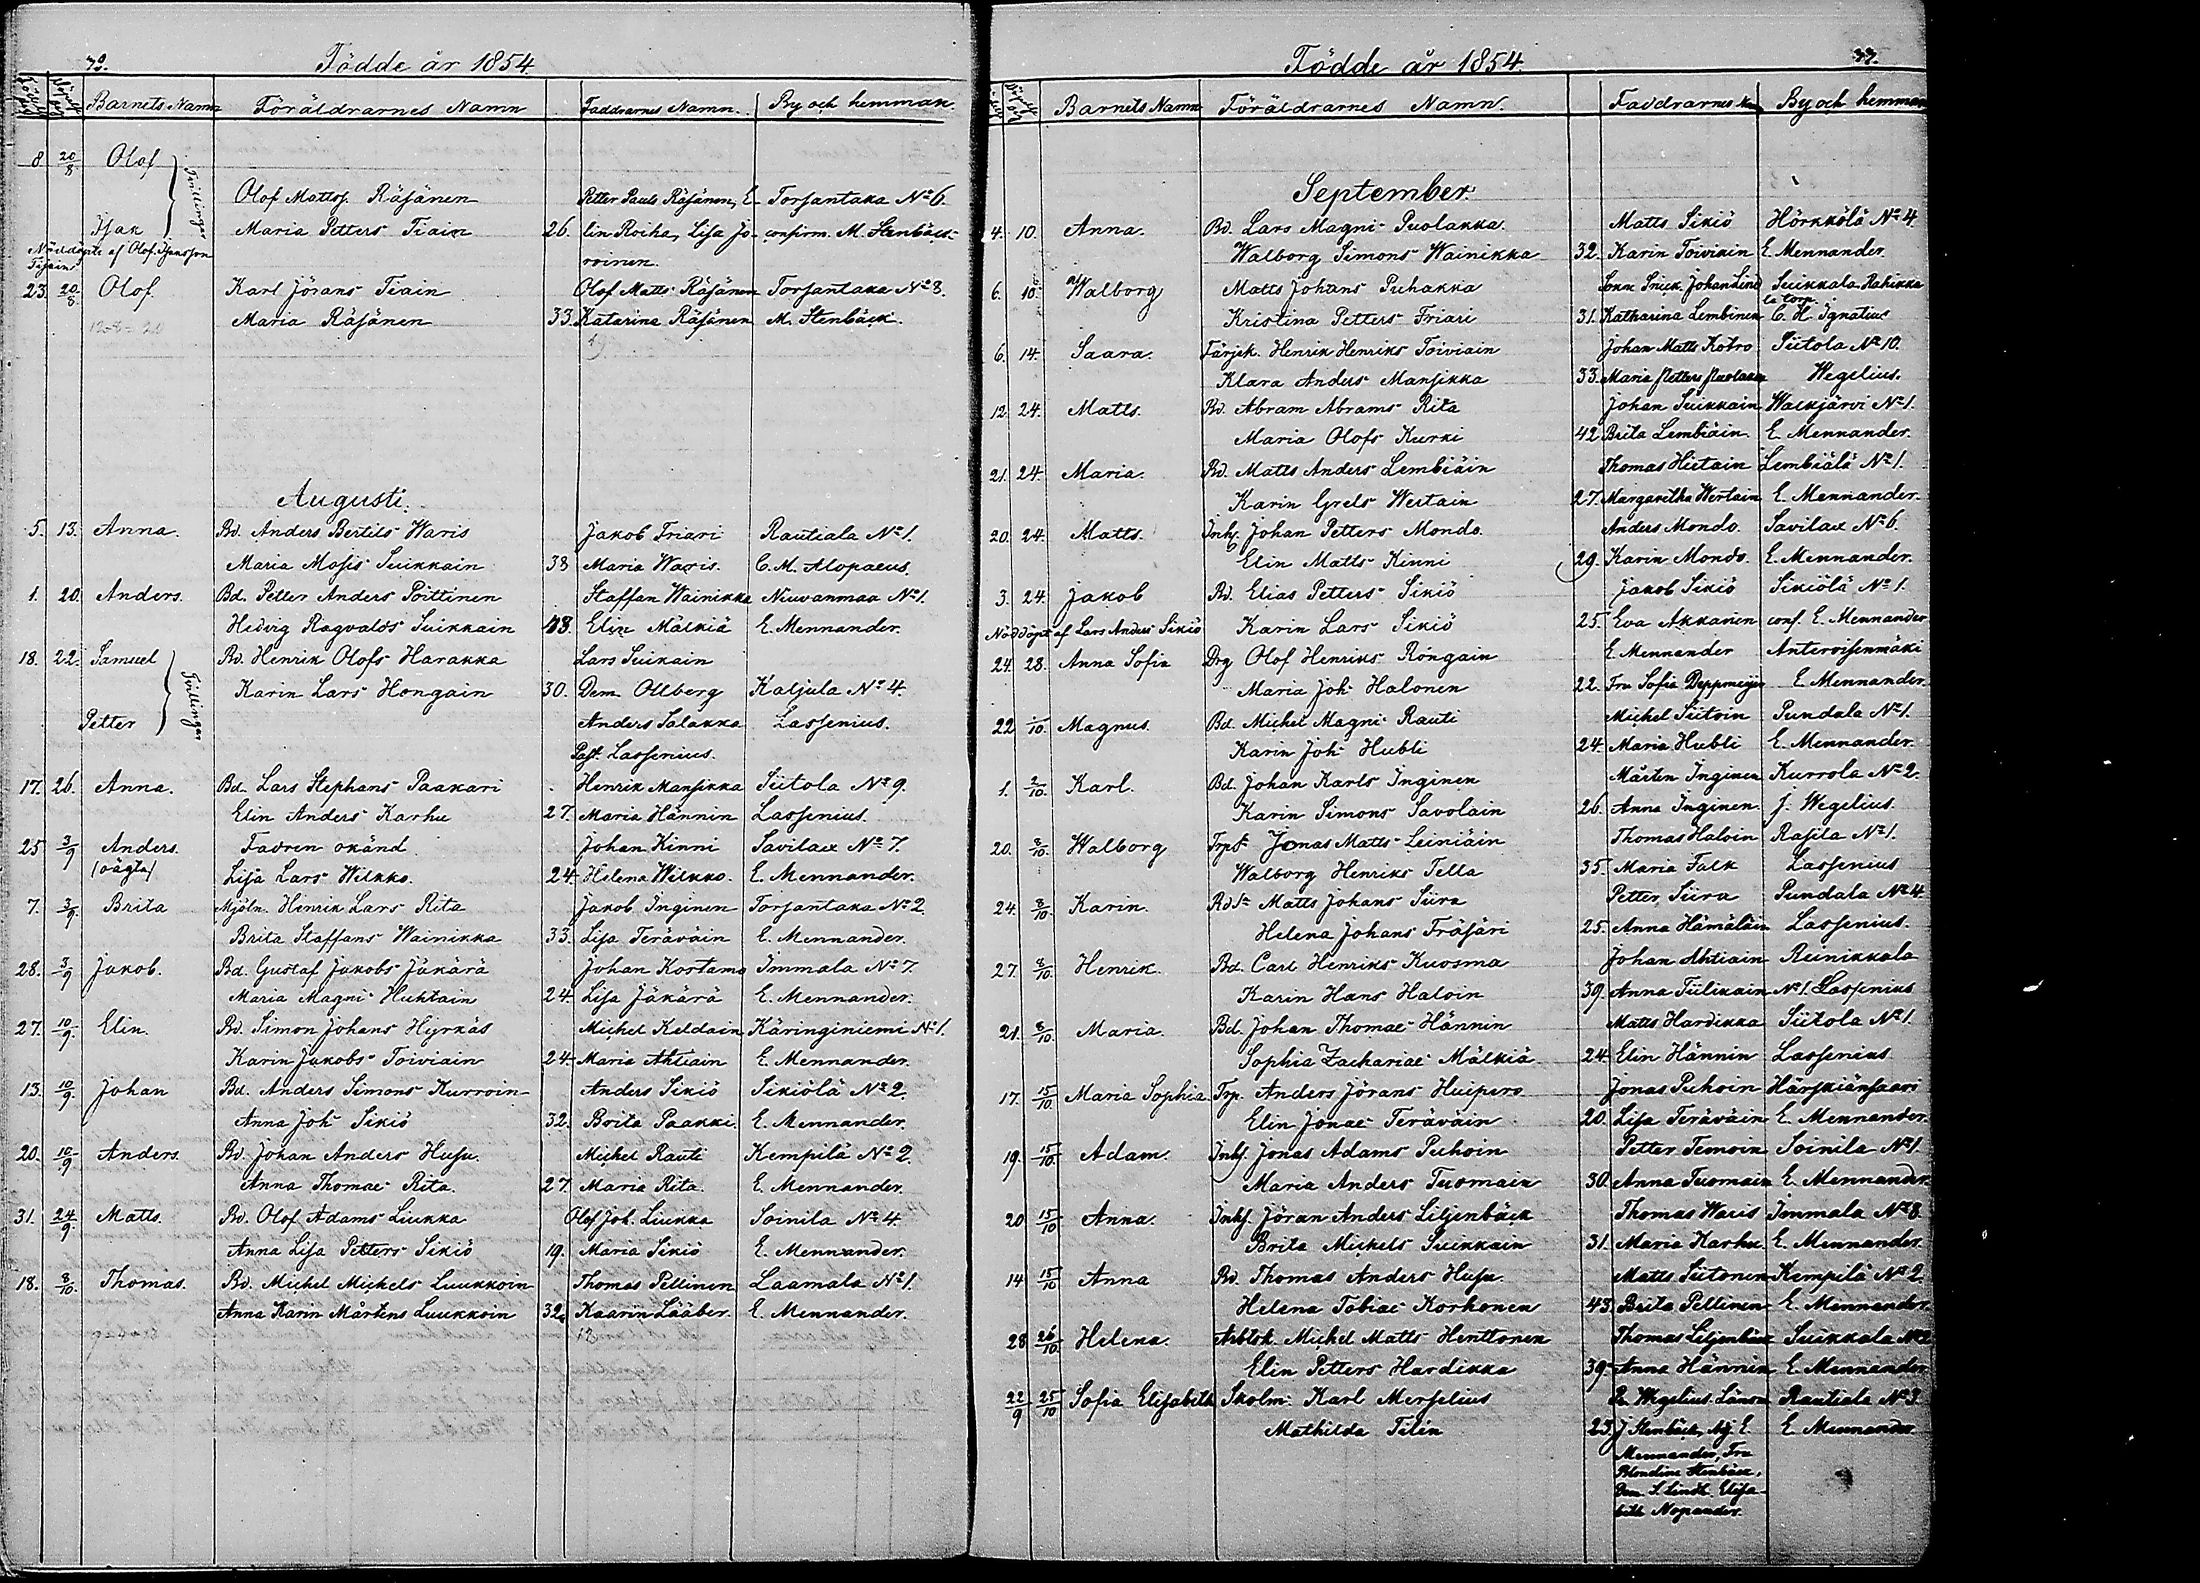 Födde år 1854
Barnets Namn Föräldrarnes Namn Faddrarnes Namn. By och hemman
8 20/8 Olof
Tvillingar
Olof Matts. Räsänen Petter Pauls Räsänen, E- Torsantaka No 6.
Isak Maria Petters Tiain 26. lin Roiha, Lisa Jo- confirm. M. Stenbäck
Nöddöpte af Olof
Tiain roinen.
23. 20/8 Olof. Karl Jörans Tiain Olof Matts Räsänen Torsantaka No 8.
Maria Räsänen 33. Katarina Räsänen M. Stenbäck.
Augusti.
5. 13. Anna. Bd. Anders Bertils Waris Jakob Friari Rautiala No 1.
Maria Mosis Suikkain 38 Maria Waris. C. M. Alopaeus.
1. 20. Anders. Bd. Petter Anders Pöittinen Staffan Wainikka Niuvanmaa No 1.
Hedvig Ragvalds Suikkain 48. Elin Mälkiä E. Mennander.
18. 22. Samuel Bd. Henrik Olofs Harakka Lars Suikain
Tvilingar
Karin Lars Hongain 30. Dem Ollberg Kaljula No 4.
Petter Anders Salakka Lassenius.
Past. Lassenius.
17. 26. Anna. Bd. Lars Stephans Paakari Henrik Mansikka Siitola No 9.
Elin Anders Karhu 27. Maria Hännin Lassenius.
25 3/9 Anders. Fadren okänd Johan Kinni Savilax No 7.
(oägta) Lisa Lars Wilkko. 24. Helena Wilkko. E. Mennander.
7. 3/9 Brita Mjöln. Henrik Lars Rita Jakob Inginen Torsantaka No 2
Brita Staffans Wainikka 33. Lisa Teräväin E. Mennander.
28. 3/9 Jakob. Bd. Gustaf Jakobs Jäkärä Johan Kostamo Immala No 7.
Maria Magni Huhtain 24. Lisa Jäkärä E. Mennander.
27. 10/9. Elin. Bd. Simon Johans Hyrkäs Michel Keldain Käringiniemi No 1.
Karin Jakobs Toiviain 24. Maria Ahtiain E. Mennander.
13. 10/9. Johan Bd. Anders Simons Kurroin Anders Sikiö Sikiölä No 2.
Anna Joh Sikiö 32. Brita Paakki E. Mennander.
20. 10/9 Anders. Bd. Johan Anders Husu Michel Rauti Kempilä No 2.
Anna Thomae Rita. 27. Maria Rita. E. Mennander.
31. 24/9. Matts. Bd. Olof Adams Liukka Olof Joh. Liukka Soinila No 4.
Anna Lisa Petters Sikiö 19. Maria Sikiö E. Mennander.
18. 8/10. Thomas. Bd. Michel Michels Luukkoin Thomas Pellinen Laamala No 1.
Anna Karin Mårtens Luukkoin 32. Kaarin Lääber. E. Mennander.
Födde år 1854. 33.
Barnets Namn Föräldrarnes Namn. Faddrarnes Nam By och hemman
September.
4. 10. Anna. Bd. Lars Magni Puolakka. Matts Sikiö Hörkkölä No 4
Walborg Simons Wainikka 32. Karin Toiviain E. Mennander.
6. 10. Walborg Matts Johans Puhakka Johan Lind Suikkala Rahikka
la torp.
Kristina Petters Friari 31. Katharina Lembinen C. H. Ignatius
6. 14. Saara. Färjek. Henrik Henriks Toiviain Johan Matts Kotro Siitola No 10.
Klara Anders Mansikka 33. Maria Petters Puolakka Wegelius.
12. 24. Matts. Bd. Abram Abrams Rita Johan Suikkain Walkjärvi No 1.
Maria Olofs Kurki 42 Brita Lembiäin E. Mennander.
21. 24. Maria. Bd. Matts Anders Lembiäin Thomas Hietain Lembiälä No 1.
Karin Grels Wertain 27. Margaretha Wertain E. Mennander.
20. 24. Matts. Inhs. Johan Petters Mondo. Anders Mondo. Savilax No 6.
Elin Matts Kinni 29. Karin Mondo. E. Mennander.
3. 24. Jakob Bd. Elias Petters Sikiö Jakob Sikiö Sikiölä No 1.
Nöddöpt af Lars Anders Sikiö Karin Lars Sikiö 25. Eva Akkanen conf. E. Mennander
24. 28. Anna Sofia Drg Olof Henriks Röngain E. Mennander Anteroisenmäki
Maria Joh Halonen 22. Fru Sofia Deppmeijer E. Mennander.
22 1/10. Magnus. Bd. Michel Magni Rauti Michel Siitoin Pundala No 1.
Karin Joh Hubli 24. Maria Hubli E. Mennander.
1. 2/10. Karl. Bd. Johan Karls Inginen Mårten Inginen Kurrola No 2.
Karin Simons Savolain 26. Anna Inginen J. Wegelius.
20. 8/10. Walborg Trps Jonas Matts Leiniäin Thomas Haloin Rasila No 1.
Walborg Henriks Tella 35. Maria Falk Lassenius
24. 8/10. Karin. Bds Matts Johans Siira Petter Siira Pundala No 4.
Helena Johans Fräsäri 25. Anna Hämäläin Lassenius.
27. 8/10. Henrik. Bd. Carl Henriks Kuosma Johan Ahtiain Reinikkala
Karin Hans Haloin 39. Anna Tiilikain No 1. Lassenius
21. 8/10. Maria. Bd. Johan Thomae Hännin Matts Hardikka Siitola No 1
Sophia Zachariae Mälkiä 24. Elin Hännin Lassenius
17. 15/10. Maria Sophia. Trp. Anders Jörans Huipero Jonas Puhoin Härskiänsaari
Elin Jonae Teräväin 20. Lisa Teräväin E. Mennander.
19. 15/10. Adam. Inhs. Jonas Adams Puhoin Petter Temoin Soinila No 1.
Maria Anders Tuomain 30. Anna Tuomain E. Mennander.
20 15/10 Anna. Inhs. Jöran Anders Liljenbäck Thomas Waris Immala No 8.
Brita Michels Suikkain 31. Maria Karhu E. Mennander.
14 15/10 Anna Bd. Thomas Anders Husu Matts Siitonen Kempilä No 2.
Helena Tobiae Korhonen 43. Brita Pellinen E. Mennander.
28 26/10. Helena. Michel Matts Henttonen Thomas Liljenbäck Suikkala No 2
Elin Petters Hardikka 39. Anna Hännin E. Mennander
22/9 25/10 Sofia Elisabeth Skolm. Karl Merselius Wegelius. Länsm Rautiala No 3.
Mathilda Tilén 23. J Stenbäck, E. E. Mennander
Mennander, Fru
Blondine Stenbäck,
Dem. S. Lindt. Elisa-
beth Nopander.